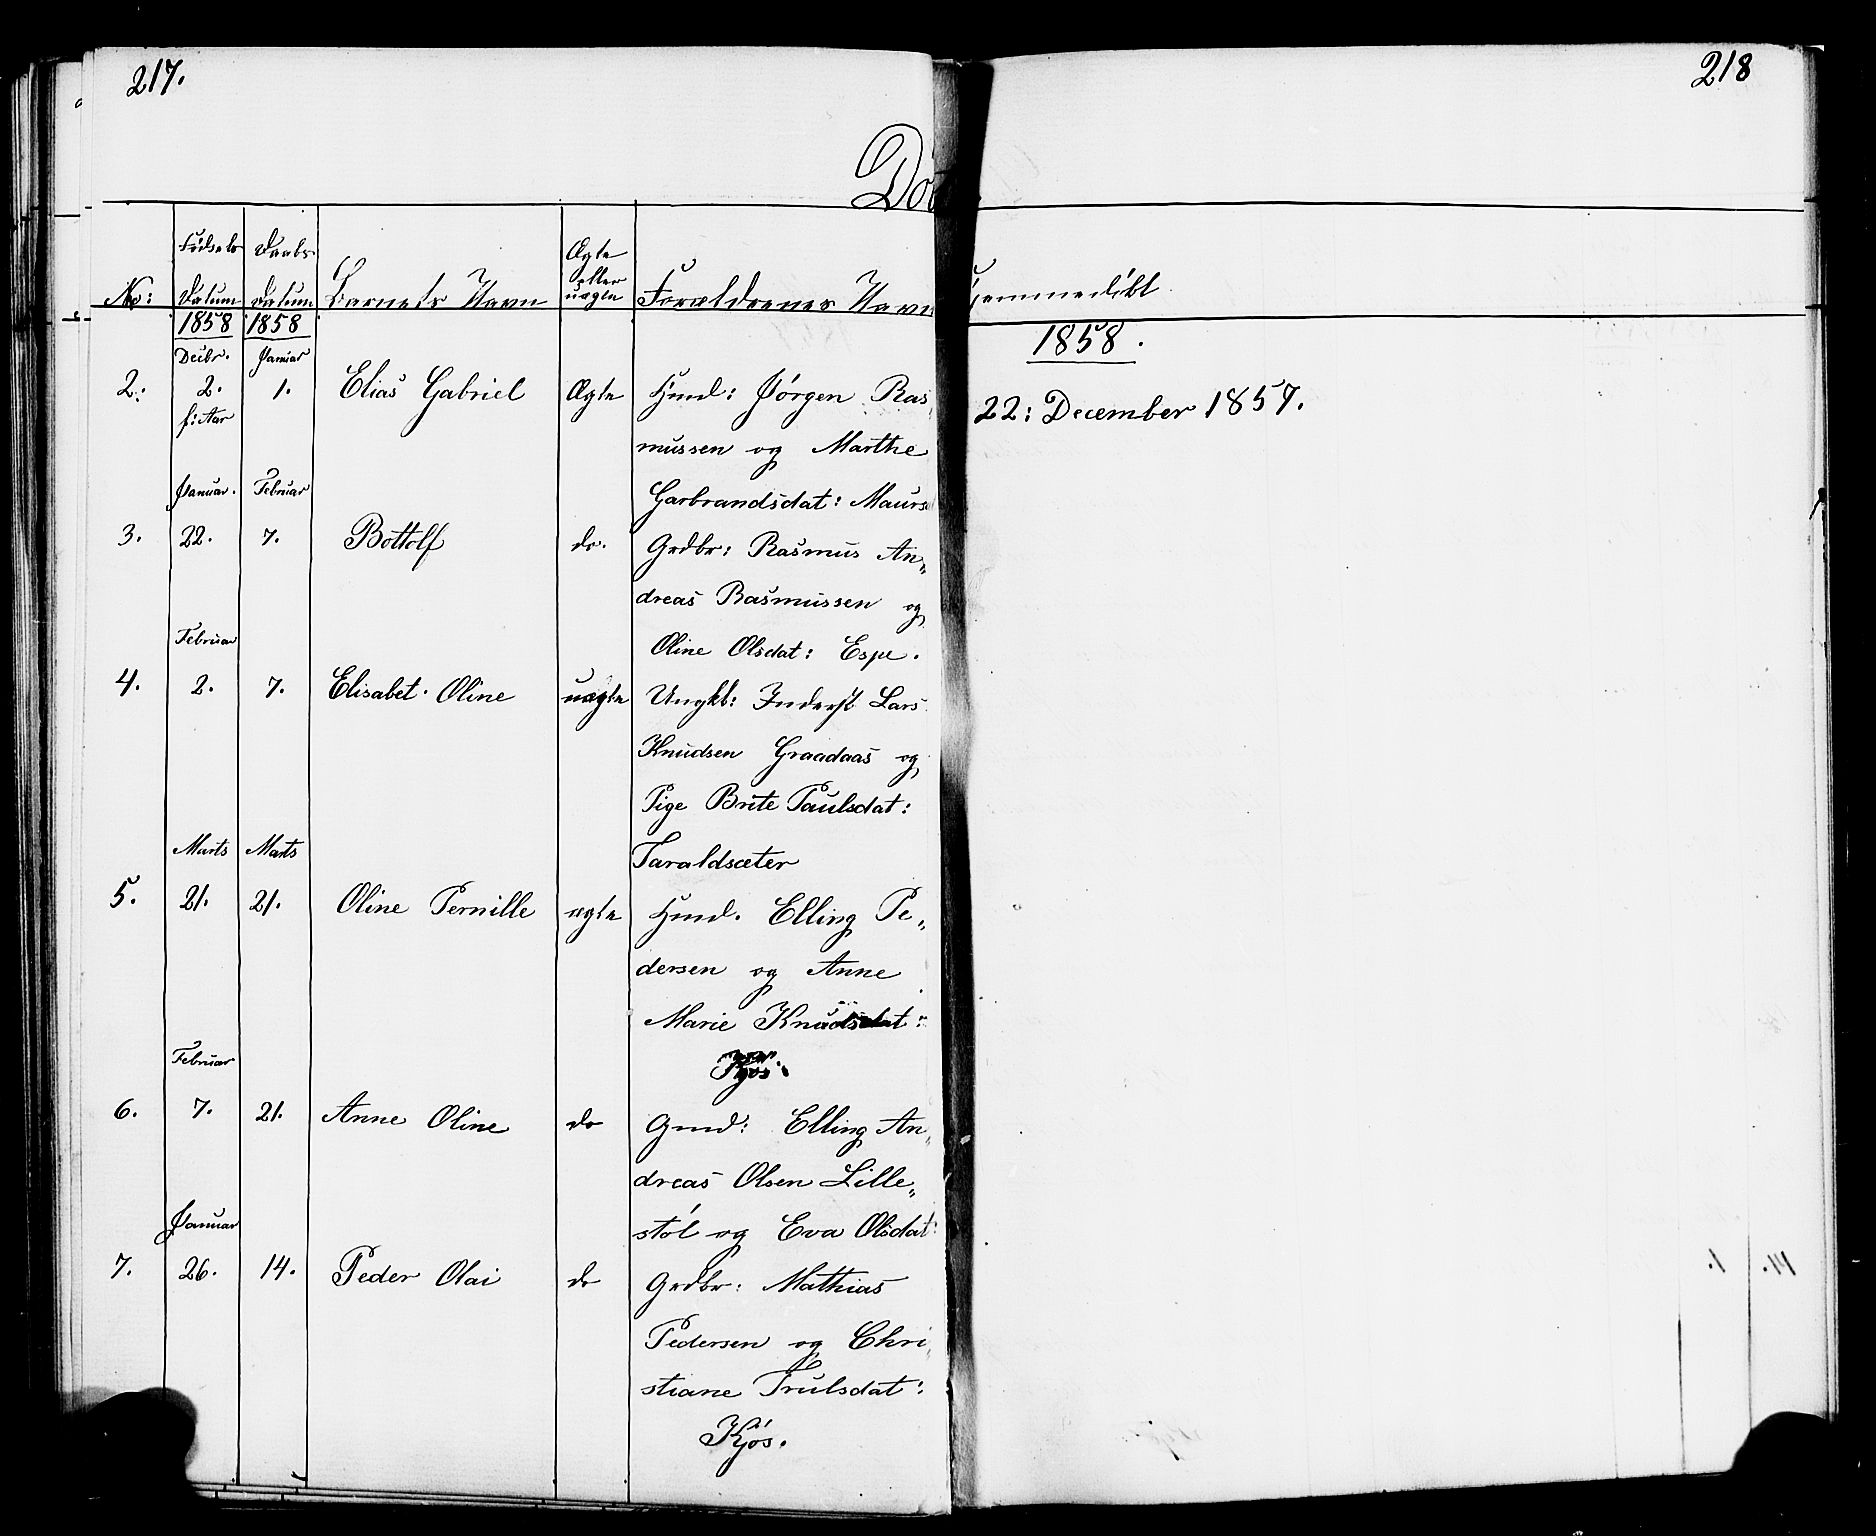 217.
218
Dø
Fødsels Daabs
Ægte
eller
No: Datum Datum Barnets Navn uægte Forældrenes Navn
jemmedøbt
1858 1858
1858.
Decbr. Januar
2: 2. 1. Elias Gabriel Ægte Hmd: Jørgen Ras„
22: December 1857.
f: Aar
mussen og Marthe
Januar. Februar
Garbrandsdat: Maurs
3. 22. 7. Bottolf do. Grdbr: Rasmus An„
dreas Rasmussen og
Februar
Oline Olsdat: Espe.
4. 2. 7. Elisabet Oline uægte Ungkl: Inderst Lars
Knudsen Graadaas og
Pige Brite Paulsdat:
Marts Marts
Taraldsæter
5. 21. 21. Oline Pernille ægte Hmd. Elling Pe„
dersen og Anne
Marie Knudsdat:
Februar
Kjøs.
6. 7. 21. Anne Oline do Gmd: Elling An„
dreas Olsen Lille„
Januar
støl og Eva Olsdat:
7. 26. 14. Peder Olai do Grdbr: Mathias
Pedersen og Chri„
stiane Trulsdat:
Kjøs.